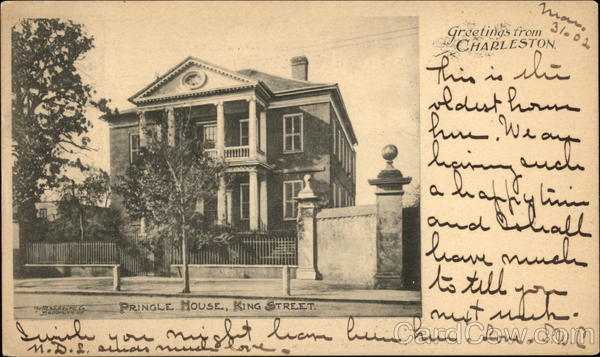 Mar.
31-02
Greetings from
CHARLESTON.
This is the
oldest home
here. We are
having such
a happy time
and I shall
have much
to tell you
next week.
PRINGLE HOUSE, KING STREET.
I wish you might have been here
N.D.L. sends much love.
CardCow.com